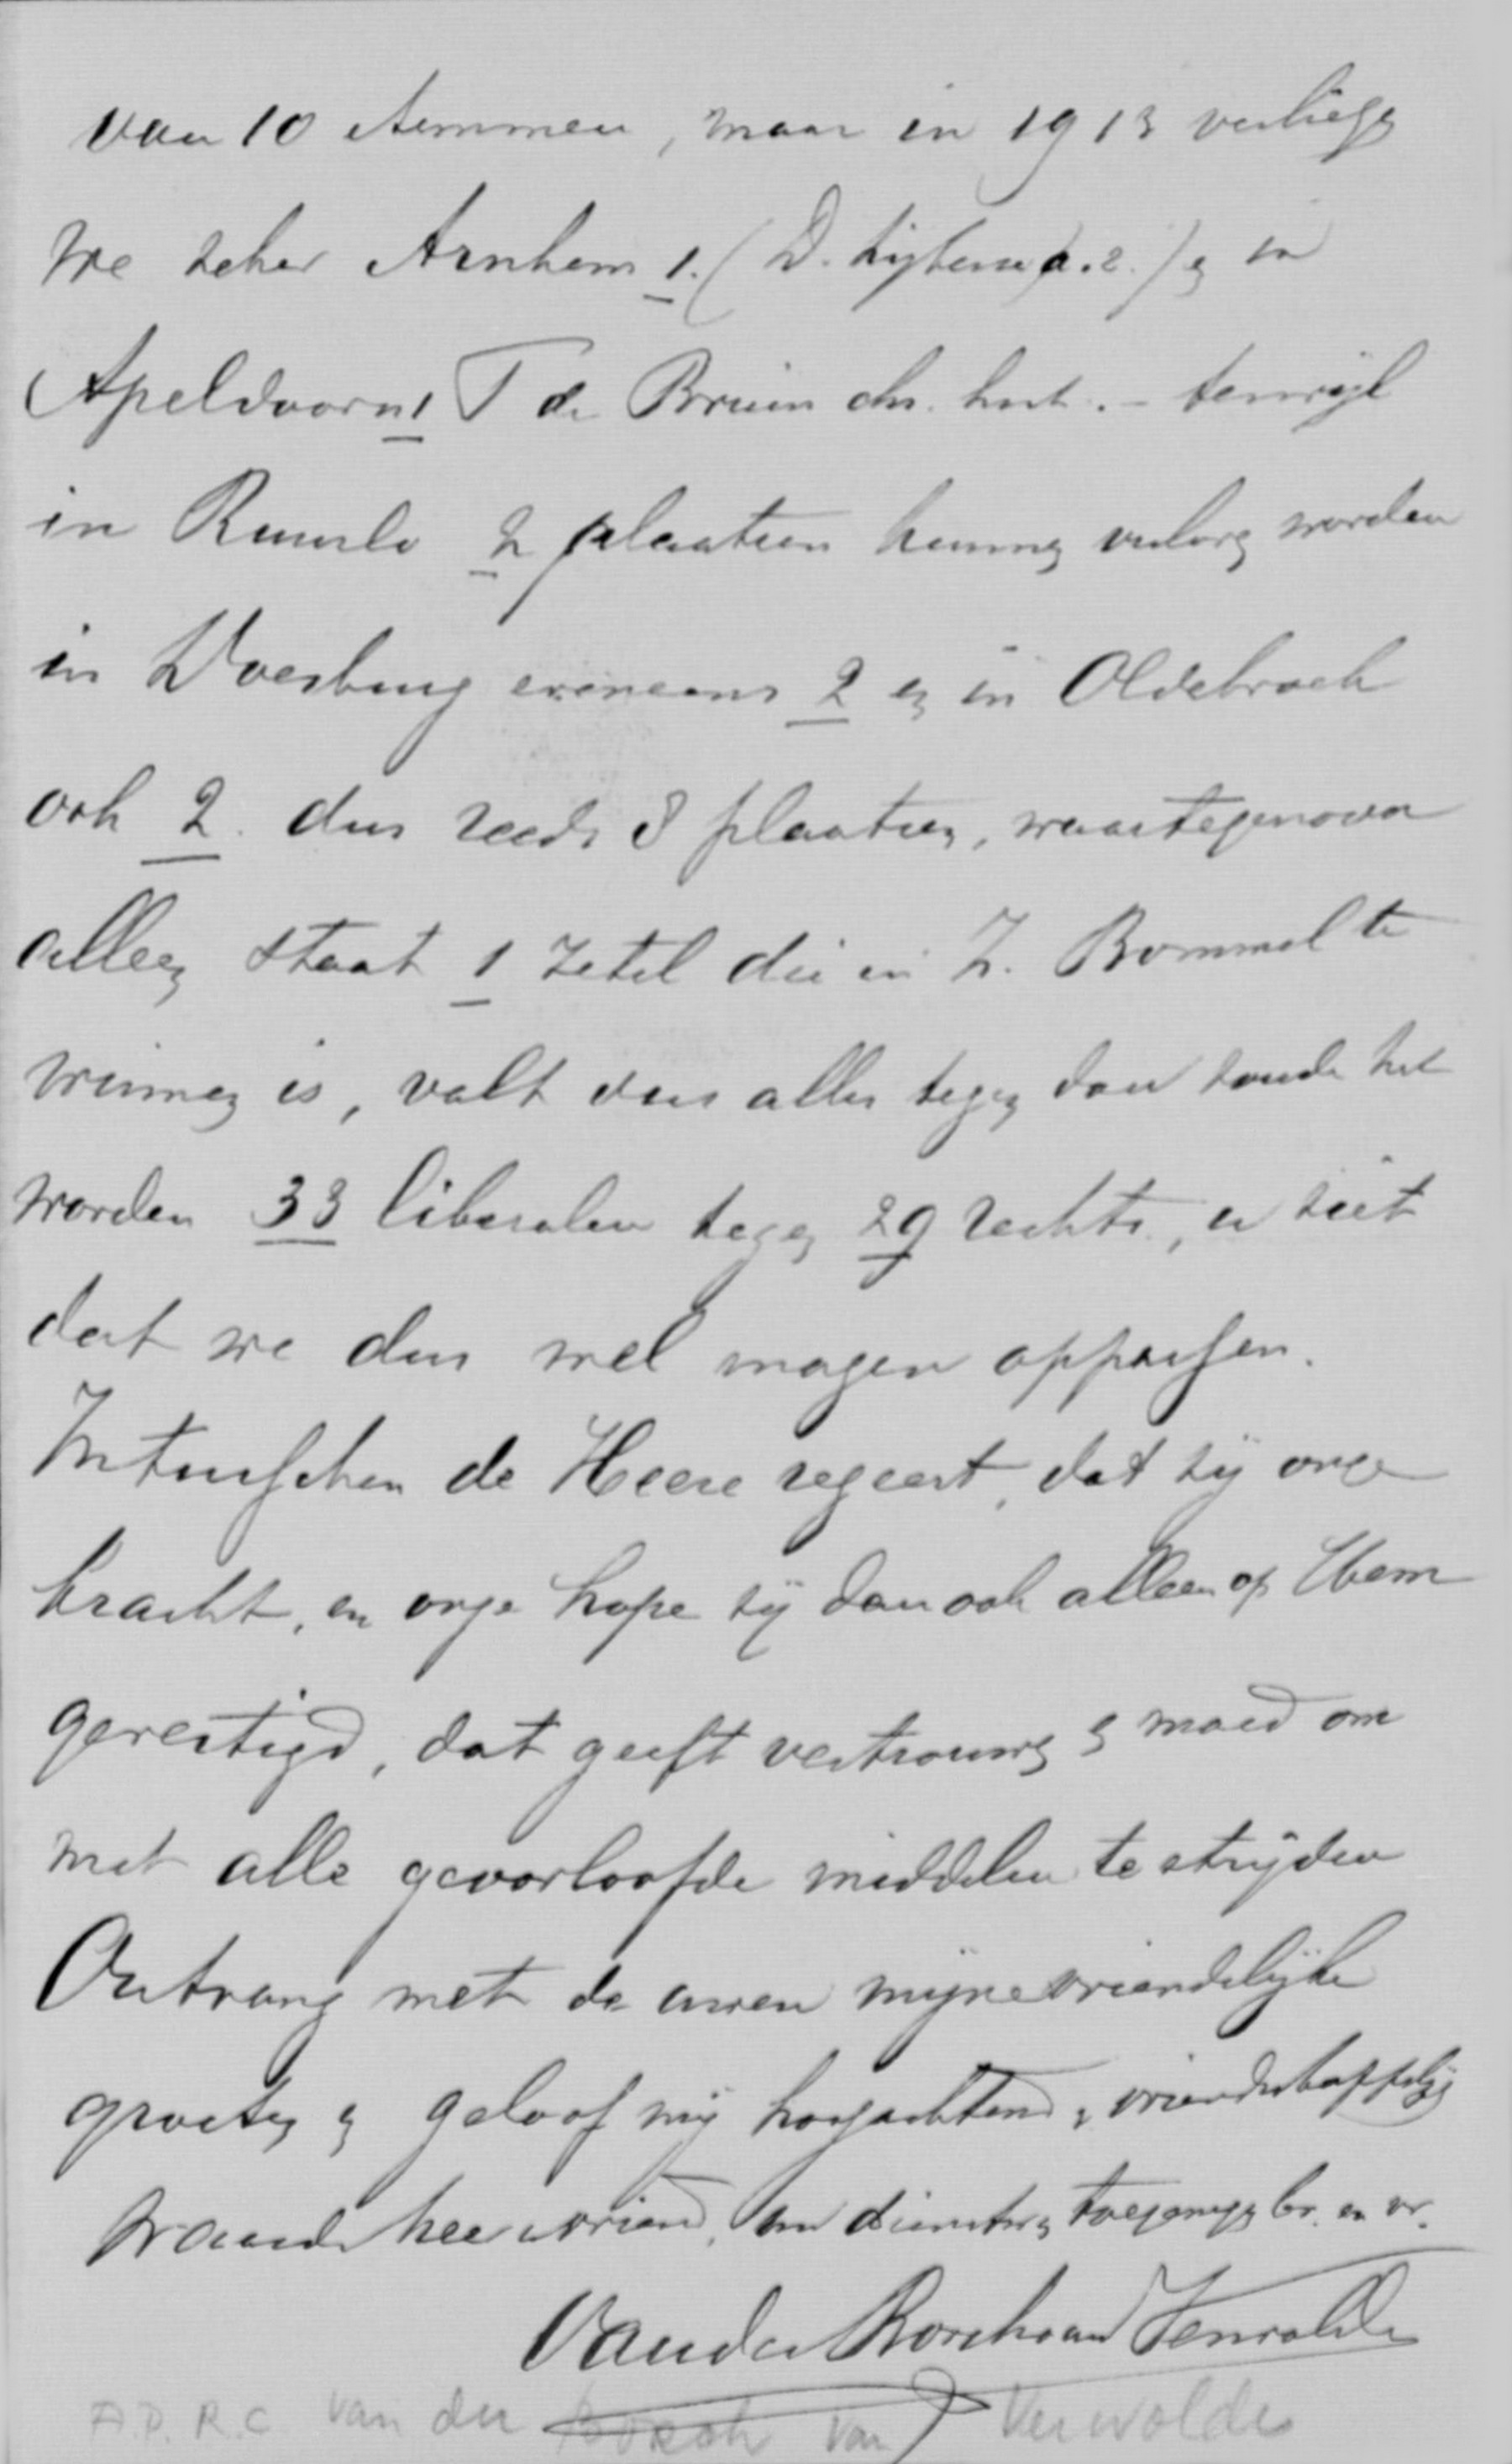 van 10 stemmen, maar in 1913 verliezen
we zeker Arnhem 1. (D. a.r.) en in
Apeldoorn 1 T de Bruin chr. hist. - terwijl
in Ruurlo 2 plaatsen kunnen verloren worden
in Doesburg eveneens 2 en in Oldebroek
ook 2. dus reeds 8 plaatsen, waartegenover
alleen staat 1 zetel die in Z. Bommel te
winnen is, valt dus alles tegen dan zoude het
worden 33 liberalen tegen 29 rechts, u ziet
dat we dus wel mogen oppassen.
Intusschen de Heere regeert, dat zij onze
kracht, en onze hope zij dan ook alleen op Hem
gevestigd, dat geeft vertrouwen en moed om
met alle geoorloofde middelen te strijden
Ontvang met de uwen mijne vriendelijke
groeten en geloof mij hoogachtend en vriendschappelijk
waarde heer en vriend, uw dienstw. toegenegen br. en vr.
Van der Borch van Verwolde
A.P.R.C van der Borch van Verwolde